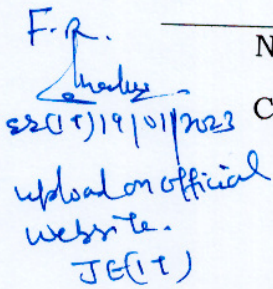 F.R.
N
se(IT)19/01/2023
C
upload on official
website.
JE(IT)